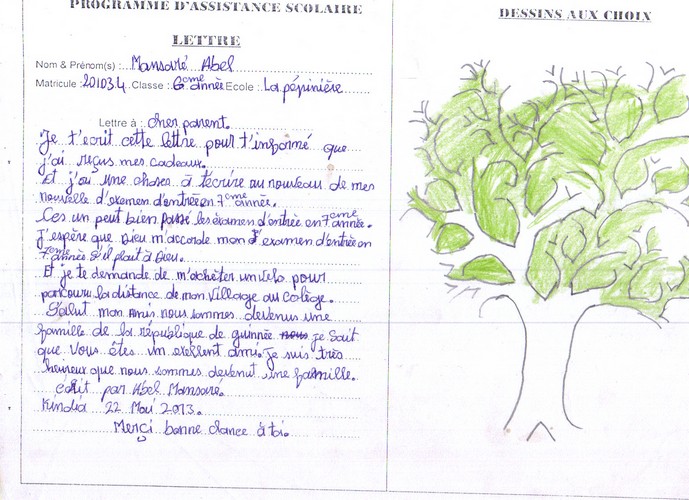 PROGRAMME D'ASSISTANCE SCOLAIRE
LETTRE
Nom & Prénom(s) : Mansaré Abel
Matricule : 201034 Classe : 6eme année Ecole : La pépinière
Lettre à : cher parent.
Je t'ecrit cette lettre pour t'informé que
j'ai reçus mes cadeaux.
Et j'ai une choses à t'écrire au nouveau de mes
nouvelle d'examen d'entrée en 7eme année.
Ces un peut bien passé les examen d'entrée en 7eme année.
J'espère que Dieu m'accorde mon d'examen d'entrée en
7eme année s'il plait à Dieu.
Et je te demande de m'achéter un velo pour
parcouru la distance de mon village au colège.
Salut mon amis nous sommes devenus une
famille de la république de guinnée nous je Sait
que Vous êtes un exellent ami. Je suis très
heureux que nous sommes devenut une famille.
ecrit par Abel Mansaré.
Kindia 22 Mai 2013.
Merçi bonne chance à toi.
DESSINS AUX CHOIX